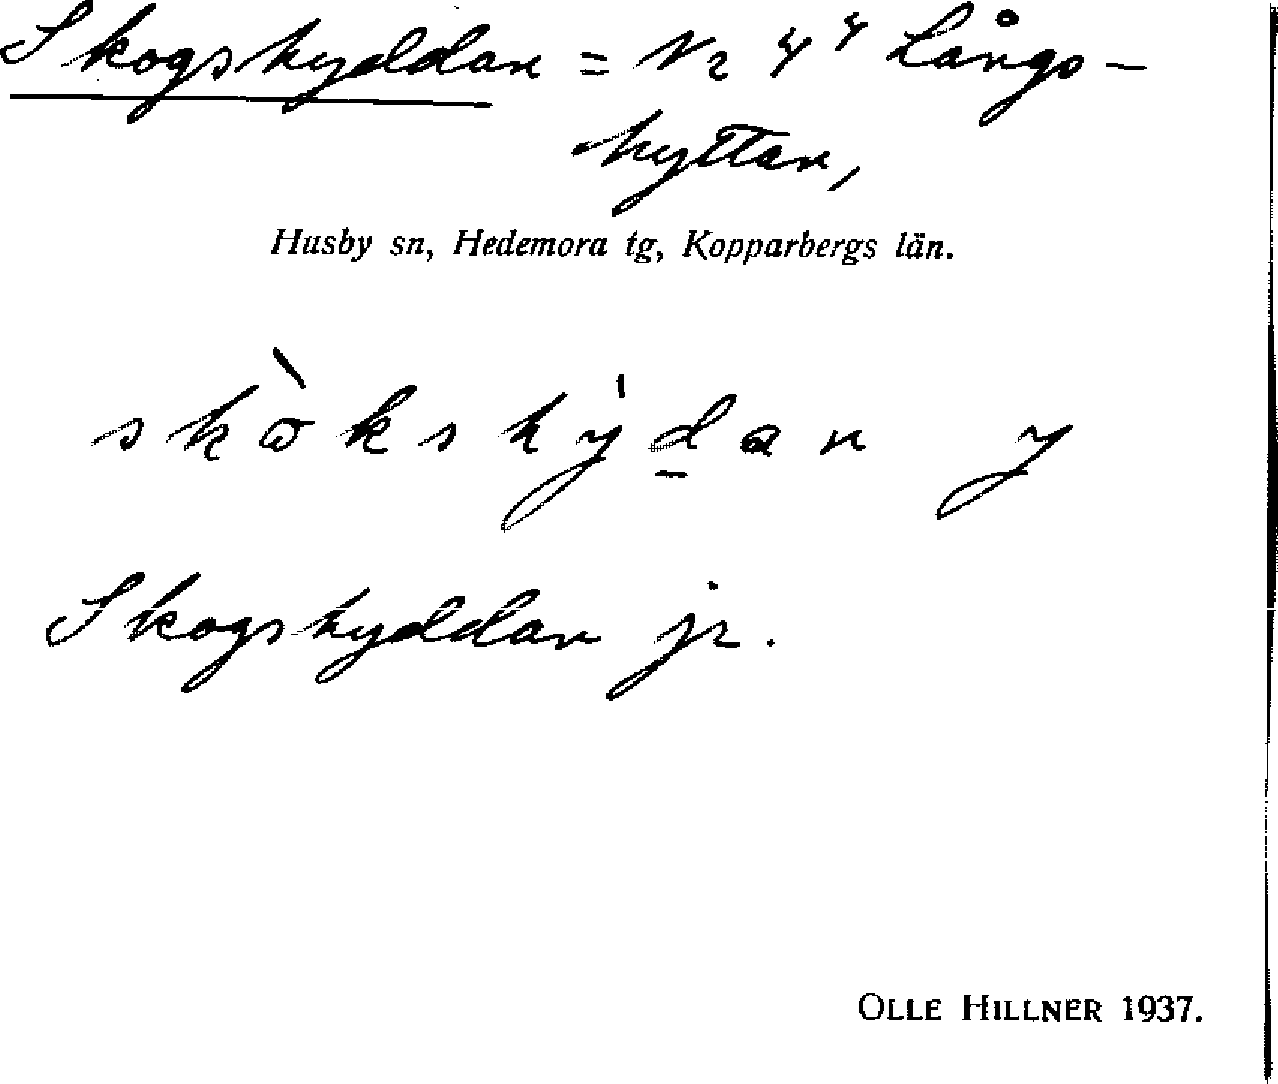 Skogshyddan = Nr 4⁴ Långs-
hyttan,
Husby sn, Hedemora tg, Kopparbergs län.
skɷ̀kshy̍d̲an y
Skogshyddan jr.
OLLE HILLNER 1937.